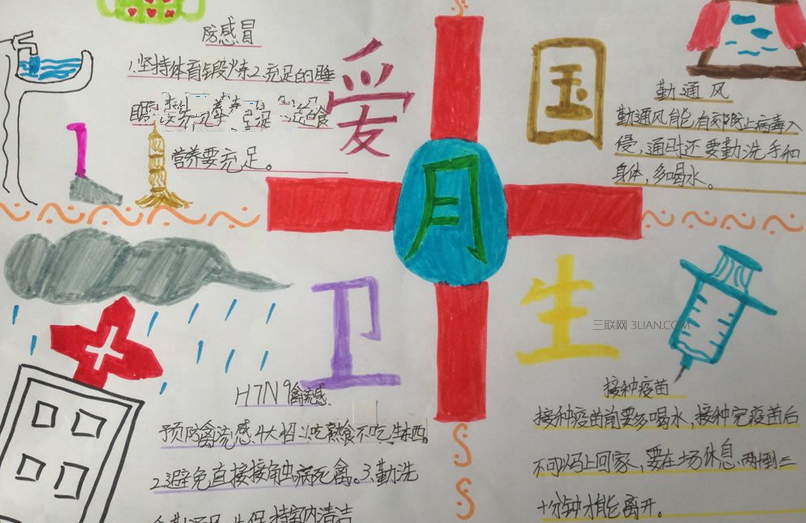 防感冒
1.坚持体育锻炼2.充足的睡
眠
营养要充足。
爱
国
卫
生
月
勤通风
勤通风能有效防止病毒入
侵,通时还要勤洗手和
身体,多喝水。
三联网 3LIAN.COM
H7N9禽流感
预防禽流感.4大招:1.吃熟食不吃生东西。
2.避免直接接触病死禽。3.勤洗
接种疫苗
接种疫苗前要多喝水,接种完疫苗后
不可以马上回家,要在场休息
十分钟才能离开。